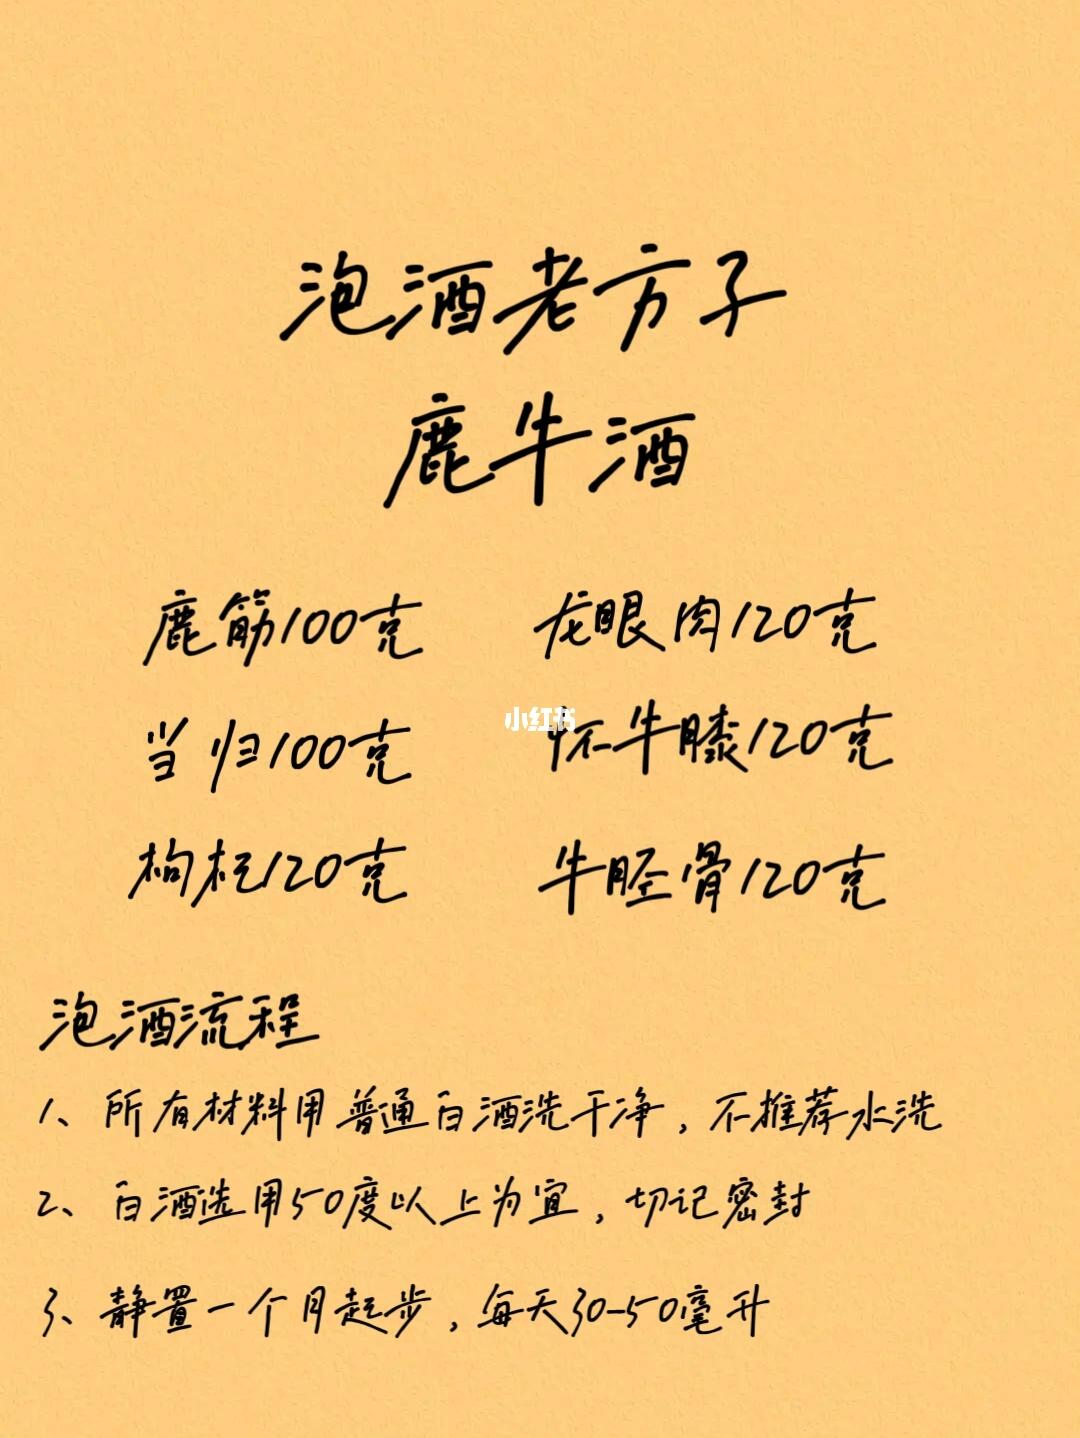 泡酒老方子
鹿牛酒
鹿筋100克 龙眼肉120克
当归100克 怀牛膝120克
小红书
枸杞120克 牛胫骨120克
泡酒流程
1、所有材料用普通白酒洗干净,不推荐水洗
2、白酒选用50度以上为宜,切记密封
3、静置一个月起步,每天30-50毫升